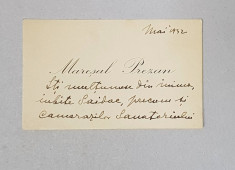 Mai 1932
Mareșal Prezan
Îți mulțumesc din inimă,
iubite Saidac, precum și
camarazilor Sanatoriului